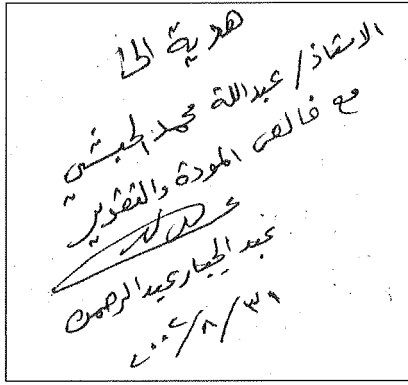 هدية الى
الاستاذ / عبدالله محمد الحبشي
مع خالص المودة والتقدير
عبدالجبار عبدالرحمن
٢٠٠٢/٨/٣١